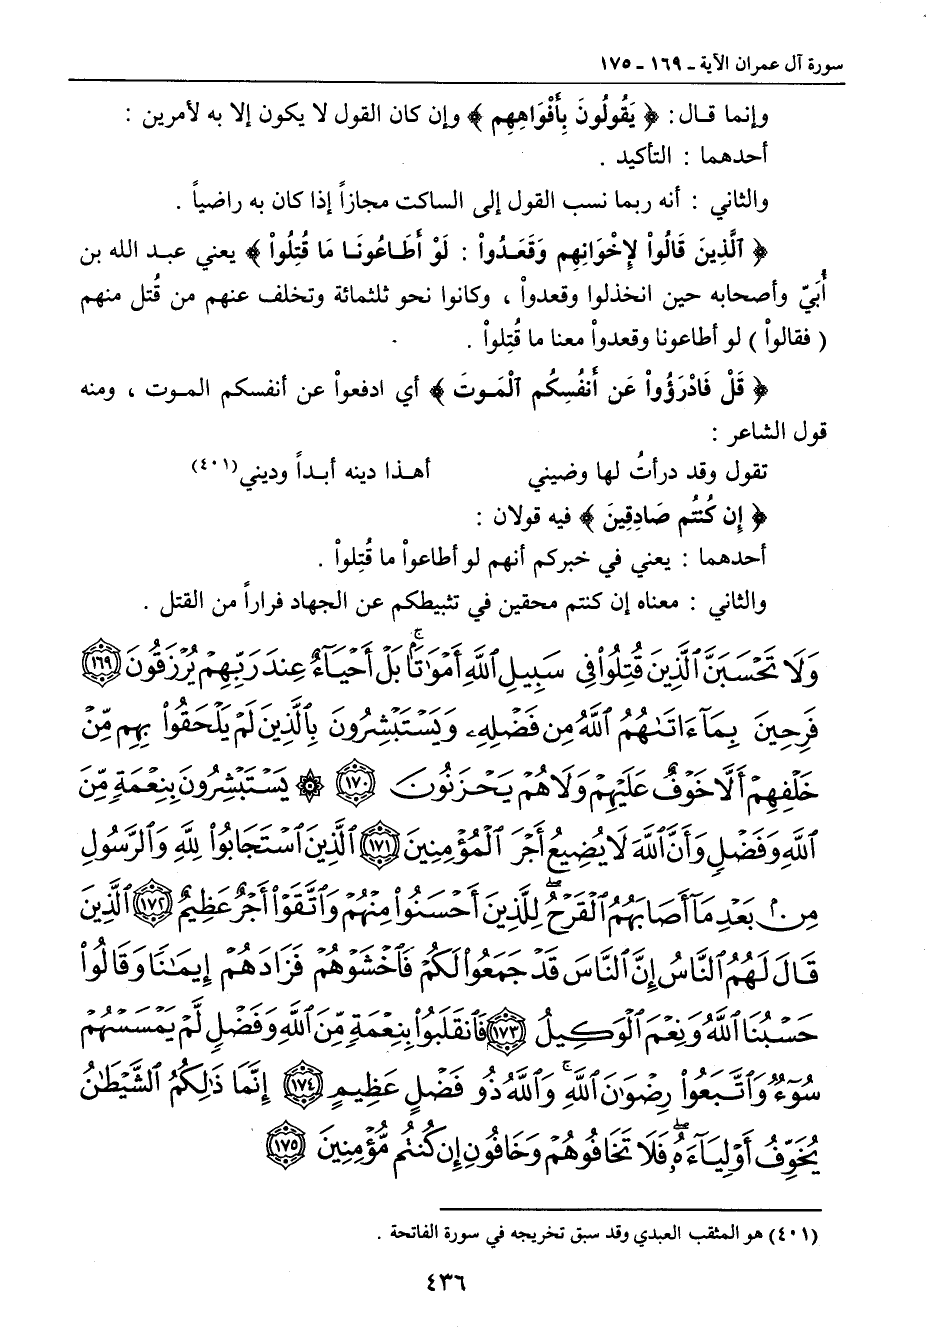 سورة آل عمران الآية ـ ١٦٩ ـ ١٧٥
وإنما قـال : ﴿ يَقُولُونَ بِأَفْوَاهِهِم ﴾ وإن كان القول لا يكون إلا به لأمرين :
أحدهما : التأكيد .
والثاني : أنه ربما نسب القول إلى الساكت مجازاً إذا كان به راضياً .
﴿ ٱلَّذِينَ قَالُواْ لِإخْوَانِهِم وَقَعَـدُواْ : لَوْ أَطَـاعُونَـا مَا قُتِلُواْ ﴾ يعني عبـد الله بن
أُبَيّ وأصحابه حين انخذلوا وقعدواْ ، وكانوا نحو ثلثمائة وتخلف عنهم من قُتل منهم
( فقالواْ ) لو أطاعونا وقعدواْ معنا ما قُتِلواْ .
﴿ قُلْ فَادْرَؤُواْ عَن أَنفُسِكُم ٱلْمَـوتَ ﴾ أي ادفعواْ عن أنفسكم المـوت ، ومنه
قول الشاعر :
تقول وقد درأتُ لها وضيني أهـذا دينه أبـداً وديني(٤٠١)
﴿ إِن كُنتُم صَادِقِينَ ﴾ فيه قولان :
أحدهما : يعني في خبركم أنهم لو أطاعواْ ما قُتِلواْ .
والثاني : معناه إن كنتم محقين في تثبيطكم عن الجهاد فراراً من القتل .
وَلَا تَحْسَبَنَّ ٱلَّذِينَ قُتِلُواْ فِى سَبِيلِ ٱللَّهِ أَمْوَٰتَۢا بَلْ أَحْيَآءٌ عِندَ رَبِّهِمْ يُرْزَقُونَ ١٦٩
فَرِحِينَ بِمَآ ءَاتَىٰهُمُ ٱللَّهُ مِن فَضْلِهِۦ وَيَسْتَبْشِرُونَ بِٱلَّذِينَ لَمْ يَلْحَقُواْ بِهِم مِّنْ
خَلْفِهِمْ أَلَّا خَوْفٌ عَلَيْهِمْ وَلَا هُمْ يَحْزَنُونَ ١٧٠ ۞ يَسْتَبْشِرُونَ بِنِعْمَةٍ مِّنَ
ٱللَّهِ وَفَضْلٍ وَأَنَّ ٱللَّهَ لَا يُضِيعُ أَجْرَ ٱلْمُؤْمِنِينَ ١٧١ ٱلَّذِينَ ٱسْتَجَابُواْ لِلَّهِ وَٱلرَّسُولِ
مِنۢ بَعْدِ مَآ أَصَابَهُمُ ٱلْقَرْحُ لِلَّذِينَ أَحْسَنُواْ مِنْهُمْ وَٱتَّقَوْاْ أَجْرٌ عَظِيمٌ ١٧٢ ٱلَّذِينَ
قَالَ لَهُمُ ٱلنَّاسُ إِنَّ ٱلنَّاسَ قَدْ جَمَعُواْ لَكُمْ فَٱخْشَوْهُمْ فَزَادَهُمْ إِيمَٰنًا وَقَالُواْ
حَسْبُنَا ٱللَّهُ وَنِعْمَ ٱلْوَكِيلُ ١٧٣ فَٱنقَلَبُواْ بِنِعْمَةٍ مِّنَ ٱللَّهِ وَفَضْلٍ لَّمْ يَمْسَسْهُمْ
سُوٓءٌ وَٱتَّبَعُواْ رِضْوَٰنَ ٱللَّهِ وَٱللَّهُ ذُو فَضْلٍ عَظِيمٍ ١٧٤ إِنَّمَا ذَٰلِكُمُ ٱلشَّيْطَٰنُ
يُخَوِّفُ أَوْلِيَآءَهُۥ فَلَا تَخَافُوهُمْ وَخَافُونِ إِن كُنتُم مُّؤْمِنِينَ ١٧٥
(٤٠١) هو المثقب العبدي وقد سبق تخريجه في سورة الفاتحة .
٤٣٦